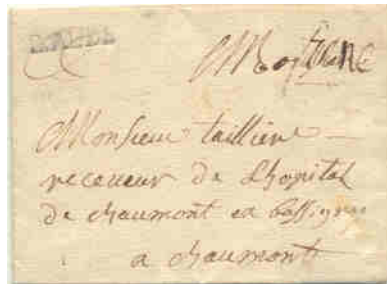 Monsieur tailliere
receueur de Lhopital
de chaumont en bassigny
a chaumont